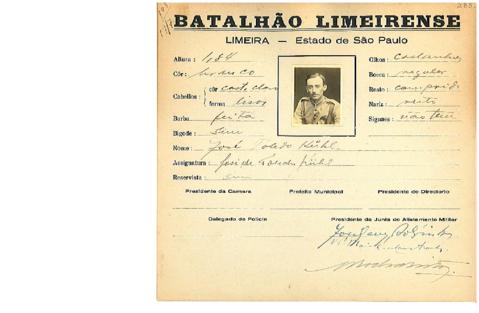 BATALHÃO LIMEIRENSE
LIMEIRA — Estado de São Paulo
Altura : 1,84
Côr: branco
Cabellos: côr cast. claro
forma liso
Barba feita
Bigode: sim
Nome: José Toledo Kühl
Assignatura: José de Toledo Kühl
Reservista:
Olhos: castanhos
Bocca: regular
Rosto: comprido
Nariz:
Signaes: não tem
Presidente da Camara Prefeito Municipal Presidente do Directorio
Delegado de Policia Presidente da Junta de Alistamento Militar